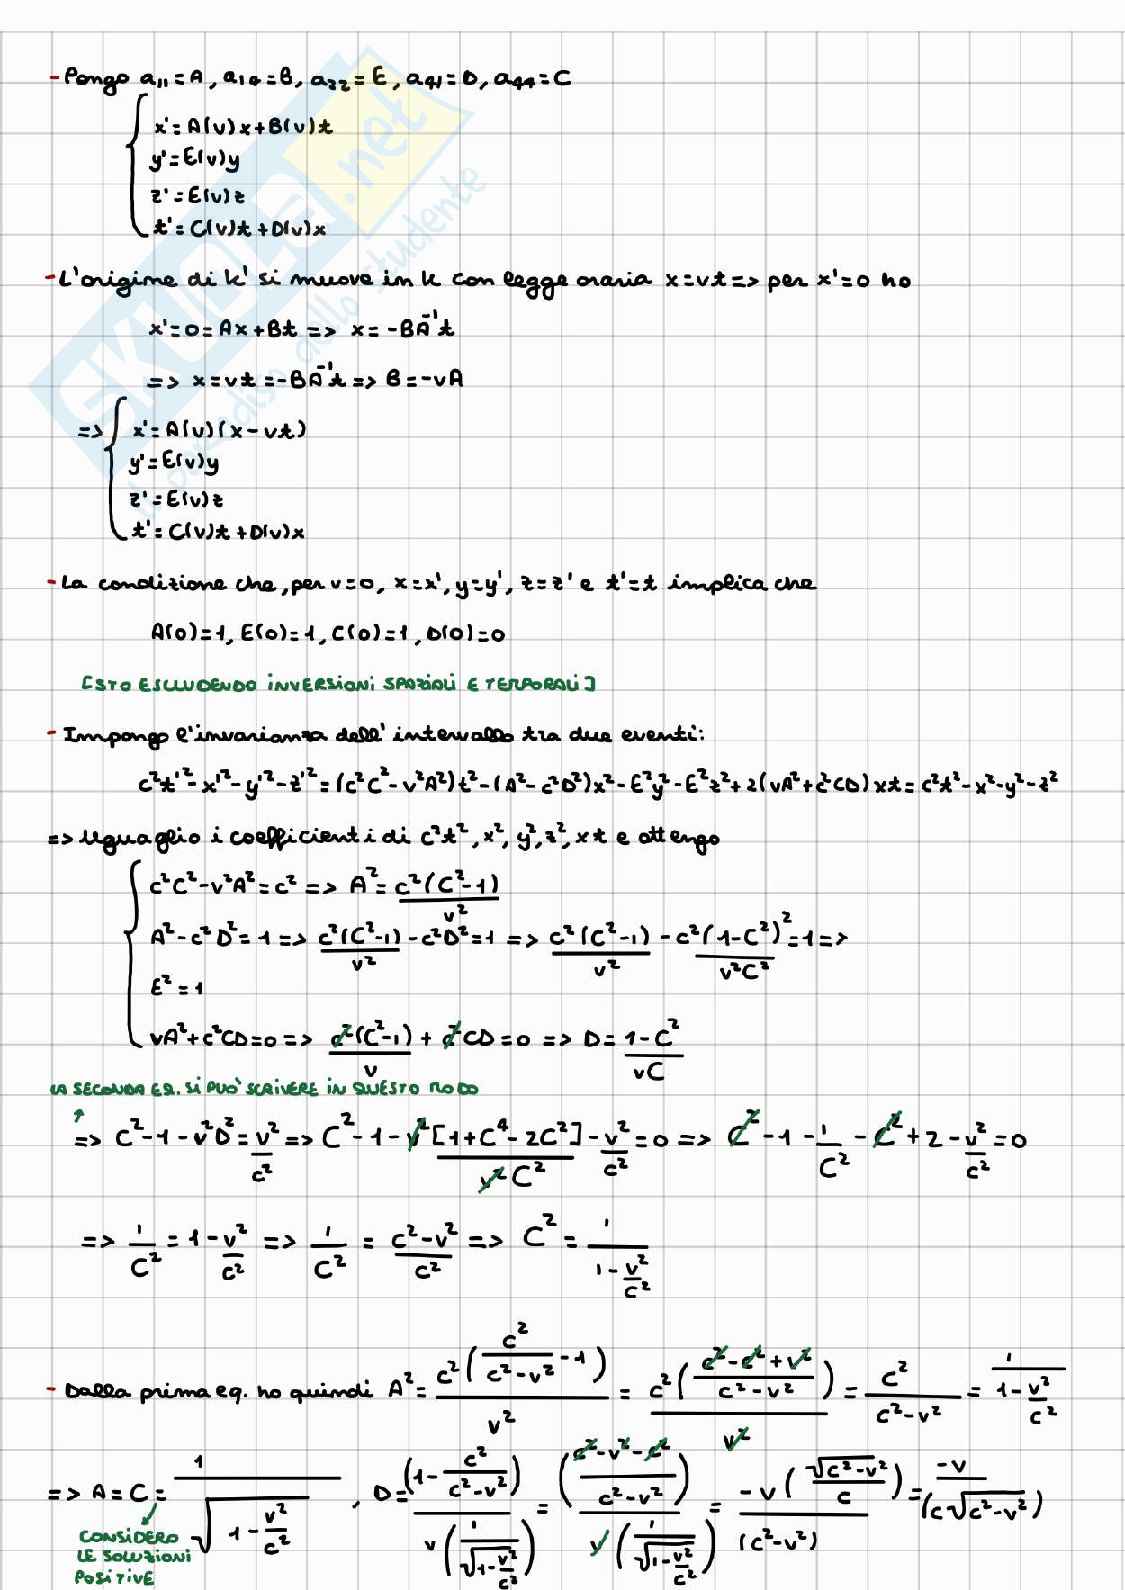 - Pongo a₁₁=A, a₁₄=B, a₂₂=E, a₄₁=D, a₄₄=C
x'=A(v)x+B(v)t
y'=E(v)y
z'=E(v)z
t'=C(v)t+D(v)x
- L'origine di k' si muove in k con legge oraria x=vt=> per x'=0 ho
x'=0=Ax+Bt => x=-BA⁻¹t
=> x=vt=-BA⁻¹t=> B=-vA
=> x'=A(v)(x-vt)
y'=E(v)y
z'=E(v)z
t'=C(v)t+D(v)x
- La condizione che, per v=0, x=x', y=y', z=z' e t'=t implica che
A(0)=1, E(0)=1, C(0)=1, D(0)=0
[STO ESCLUDENDO INVERSIONI SPAZIALI E TEMPORALI]
- Impongo l'invarianza dell'intervallo tra due eventi:
c²t'²-x'²-y'²-z'²=(c²C²-v²A²)t²-(A²-c²D²)x²-E²y²-E²z²+2(vA²+c²CD)xt=c²t²-x²-y²-z²
=> Uguaglio i coefficienti di c²t², x², y², z², xt e ottengo
c²C²-v²A²=c² => A²=c²(C²-1)/v²
A²-c²D²=1 => c²(C²-1)/v² - c²D²=1 => c²(C²-1)/v² - c²(1-C²)²/v²C²=1=>
E²=1
vA²+c²CD=0 => c²(C²-1)/v + c²CD=0 => D=1-C²/vC
LA SECONDA EQ. SI PUÒ SCRIVERE IN QUESTO MODO
=> C²-1-v²D²=v²/c² => C²-1-v²[1+C⁴-2C²]/v²C² - v²/c²=0 => C²-1-1/C²-C²+2-v²/c²=0
=> 1/C²=1-v²/c² => 1/C²=c²-v²/c² => C²=1/1-v²/c²
- Dalla prima eq. ho quindi A²=c²(c²/c²-v² -1)/v² = c²(c²-c²+v²/c²-v²)/v² = c²/c²-v² = 1/1-v²/c²
=> A=C=1/√1-v²/c², D=(1-c²/c²-v²)/v(1/√1-v²/c²) = (c²-v²-c²/c²-v²)/v(1/√1-v²/c²) = -v(√c²-v²/c)/(c²-v²) = -v/(c√c²-v²)
CONSIDERO
LE SOLUZIONI
POSITIVE
SKUOLA.net
il paradiso dello studente